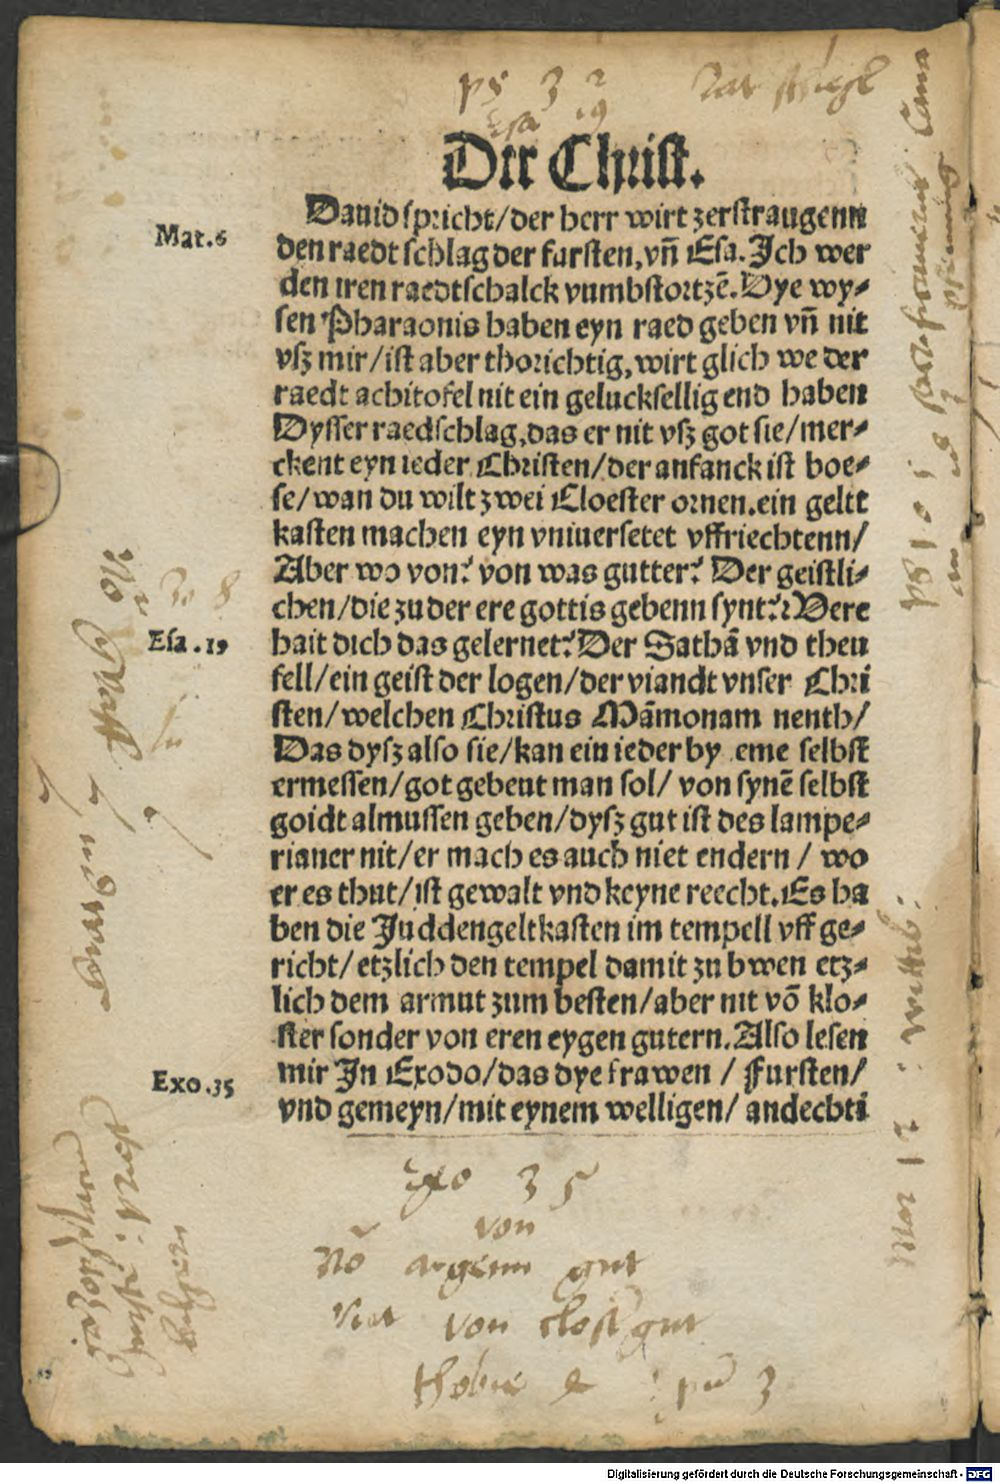 ps 3 2
Esa 19
Der Christ.
Dauid spricht/der herr wirt zerstraugenn
Mat.6
den raedt schlag der fursten,vñ Esa. Ich wer
den iren raedtschalck vumbstortzē. Dye wy⸗
sen Pharaonis haben eyn raed geben vñ nit
vsz mir/ist aber thorichtig,wirt glich we der
raedt achitofel nit ein gelucksellig end haben
Dysser raedschlag,das er nit vsz got sie/mer⸗
ckent eyn ieder Christen/der anfanck ist boe⸗
se/wan du wilt zwei Cloester ornen.ein geltt
kasten machen eyn vniuersetet vffriechtenn/
Aber wo von? von was gutter? Der geistli⸗
chen/die zu der ere gottis gebenn synt? Were
Esa.19
hait dich das gelernet? Der Sathā vnd theu
fell/ein geist der logen/der viandt vnser Chri
sten/welchen Christus Māmonam nenth/
Das dysz also sie/kan ein ieder by eme selbst
ermessen/got gebeut man sol/ von synē selbst
goidt almussen geben/dysz gut ist des lampe⸗
rianer nit/er mach es auch niet endern / wo
er es thut/ist gewalt vnd keyne reecht. Es ha
ben die Juddengeltkasten im tempell vff ge⸗
richt/etzlich den tempel damit zu bwen etz⸗
lich dem armut zum besten/aber nit vō klo⸗
ster sonder von eren eygen gutern. Also lesen
Exo.35
mir In Exodo/das dye frawen / Fursten/
vnd gemeyn/mit eynem welligen/ andechti
35
von
gut
von clost gut
3
ps 10
Mar 12
Digitalisierung gefördert durch die Deutsche Forschungsgemeinschaft - DFG